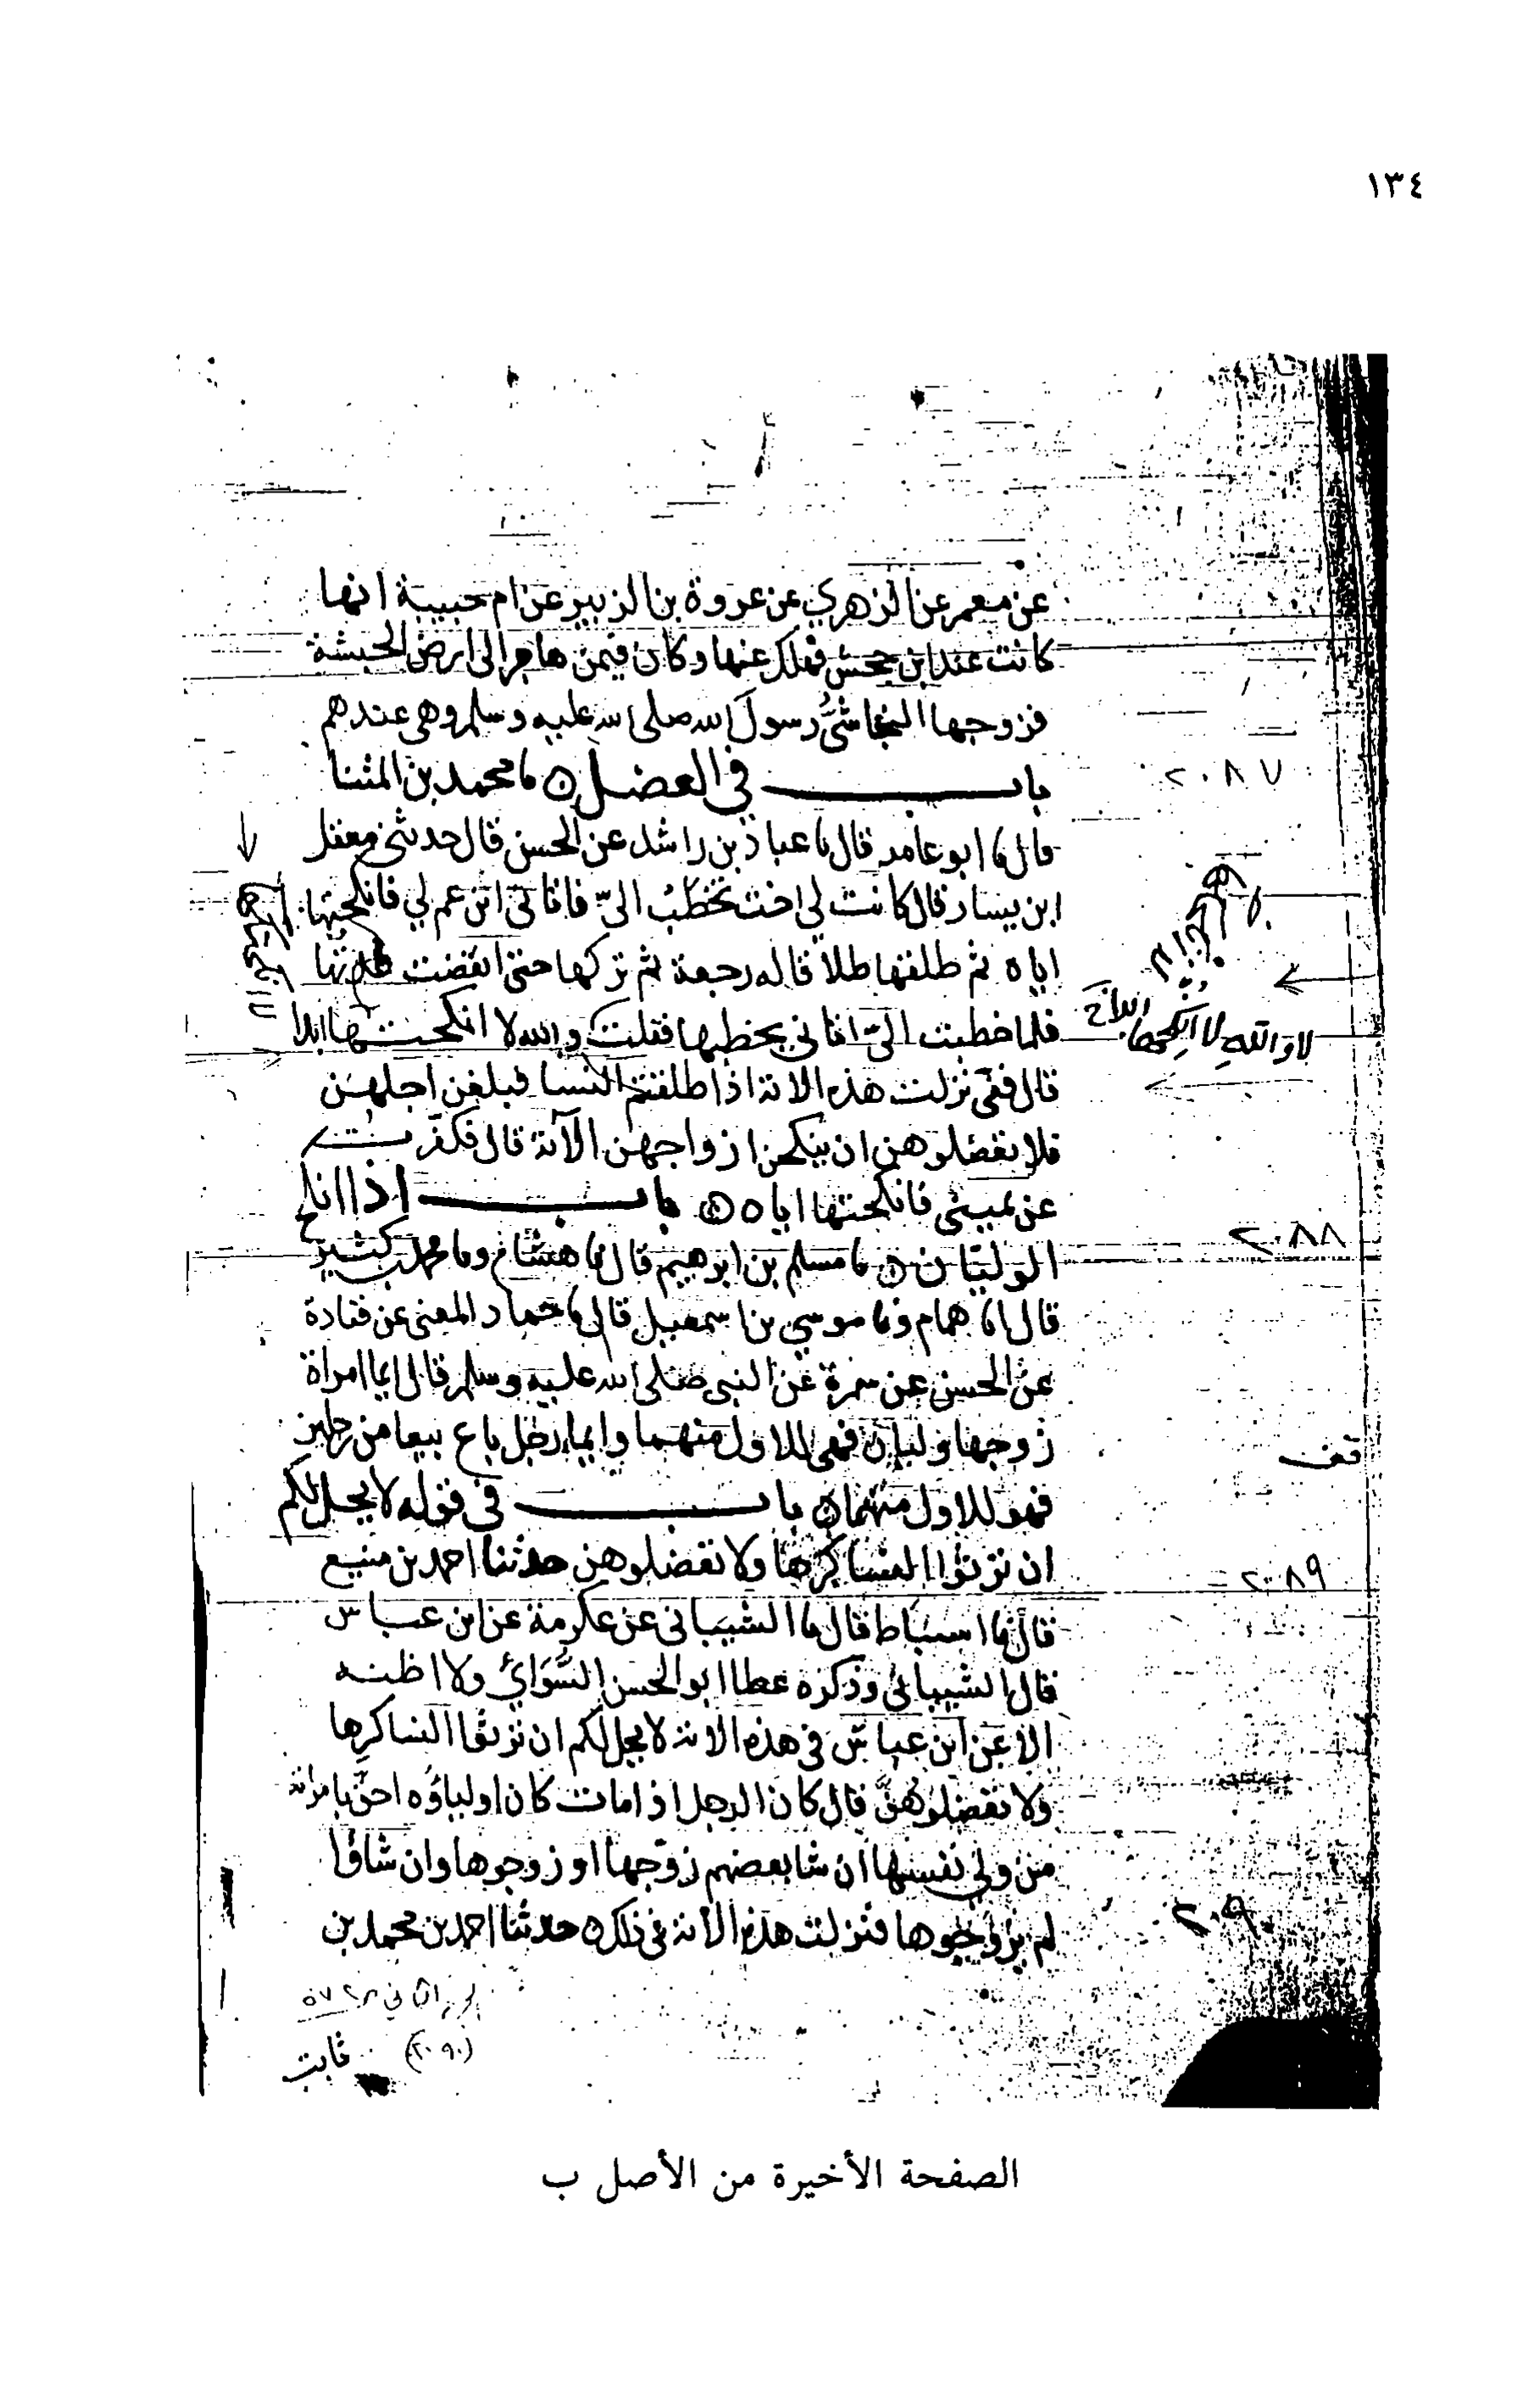 ١٣٤
عن معمر عن الزهري عن عروة بن الزبير عن ام حبيبة انها
كانت عند ابن جحش فهلك عنها وكان فيمن هاجر الى ارض الحبشة
فزوجها النجاشيُّ رسولَ الله صلى الله عليه وسلم وهي عندهم
٢٠٨٧
باب في العضل ٥ نا محمد بن المثنا
قال نا ابو عامر قال نا عباد بن راشد عن الحسن قال حدثني معقل
ابن يسار قال كانت لي اخت تُخطَبُ اليّ فاتاني ابن عم لي فانكحتها
اياه ثم طلقها طلاقا له رجعة ثم تركها حتى انقضت عدتها
فلما خطبت اليّ اتاني يخطبها فقلت والله لا انكحتها ابدا
لا والله لا انكحها
قال ففي نزلت هذه الاية اذا طلقتم النسا فبلغن اجلهن
فلا تعضلوهن ان ينكحن ازواجهن الآية قال فكفّرت
عن يميني فانكحتها اياه ٥ باب اذا انكح
٢٠٨٨
الوليّان ٥ نا مسلم بن ابرهيم قال نا هشام ونا محمد بن كثير
قال انا همام ونا موسي بن اسمعيل قال نا حماد المعنى عن قتادة
عن الحسن عن سمرة عن النبي صلى الله عليه وسلم قال ايما امراة
زوجها وليان فهي للاول منهما وايما رجل باع بيعا من رجلين
قف
فهو للاول منهما ٥ باب في قوله لا يحل لكم
ان ترثوا النسا كرها ولا تعضلوهن حدثنا احمد بن منيع
٢٠٨٩
قال نا اسباط قال نا الشيباني عن عكرمة عن ابن عباس
قال الشيباني وذكره عطا ابو الحسن السُّوَائي ولا اظنه
الا عن ابن عباس في هذه الاية لا يحل لكم ان ترثوا النسا كرها
ولا تعضلوهُنَّ قال كان الرجل اذا مات كان اولياؤه احق بامراته
من ولي نفسها ان شا بعضهم زوّجها او زوجوها وان شاؤا
لم يزوجوها فنزلت هذه الاية في ذلك ٥ حدثنا احمد بن محمد بن
٢٠٩٠
(٢٠٩٠)
ثابت
الصفحة الأخيرة من الأصل ب